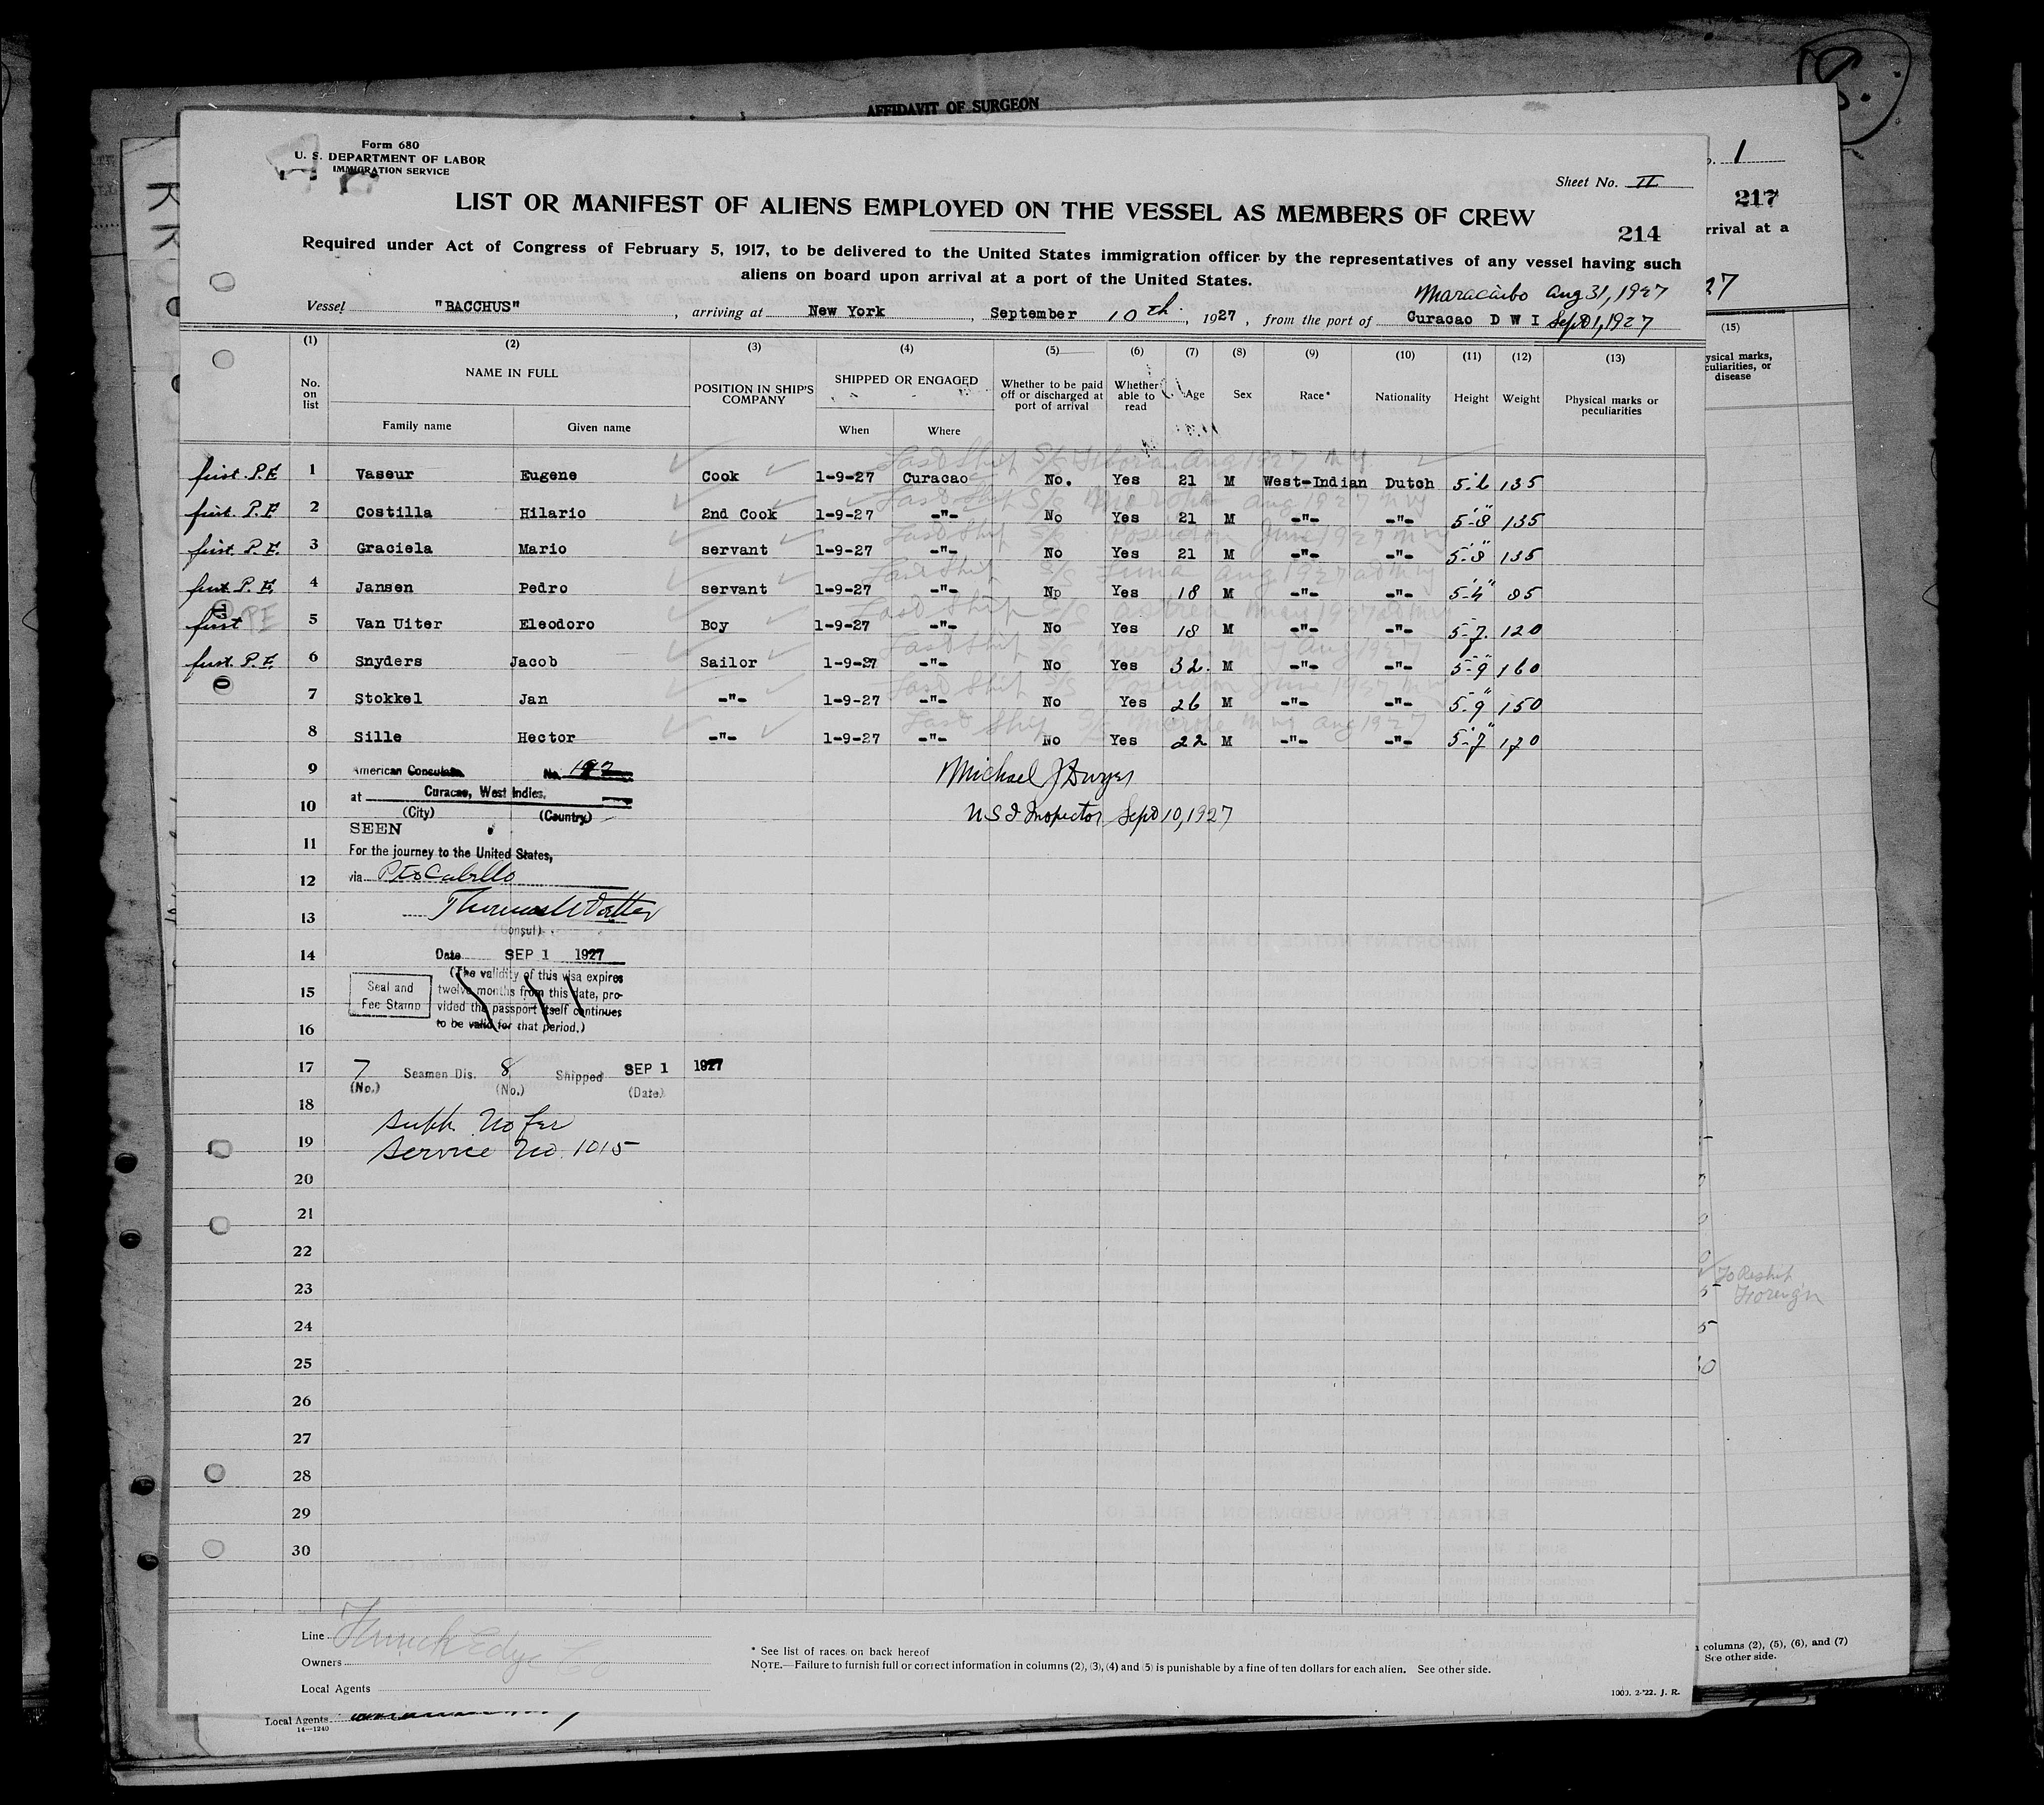 AFFIDAVIT OF SURGEON
Form 680
U. S. DEPARTMENT OF LABOR
IMMIGRATION SERVICE
Sheet No. II
1
217
LIST OR MANIFEST OF ALIENS EMPLOYED ON THE VESSEL AS MEMBERS OF CREW
214
rrival at a
Required under Act of Congress of February 5, 1917, to be delivered to the United States immigration officer by the representatives of any vessel having such
aliens on board upon arrival at a port of the United States.
Maracaibo Aug 31, 1927
27
Vessel "BACCHUS", arriving at New York, September 10th, 1927, from the port of Curacao D W I Sept 1, 1927
(1) (2) (3) (4) (5) (6) (7) (8) (9) (10) (11) (12) (13) (15)
No. on list NAME IN FULL POSITION IN SHIP'S COMPANY SHIPPED OR ENGAGED Whether to be paid off or discharged at port of arrival Whether able to read Age Sex Race* Nationality Height Weight Physical marks or peculiarities
ysical marks,
culiarities, or
disease
Family name Given name When Where
Last Ship S/S Aug 1927 N Y
first P.E 1 Vaseur Eugene Cook 1-9-27 Curacao No. Yes 21 M West-Indian Dutch 5-6 135
Last Ship S/S Merope Aug 1927 N Y
first P.E 2 Costilla Hilario 2nd Cook 1-9-27 -"- No Yes 21 M -"- -"- 5'-8" 135
Last Ship S/S Poseidon June 1927 N Y
first P.E. 3 Graciela Mario servant 1-9-27 -"- No Yes 21 M -"- -"- 5'-8" 135
Last Ship S/S Luna Aug 1927 N Y
first P.E. 4 Jansen Pedro servant 1-9-27 -"- No Yes 18 M -"- -"- 5'-4" 95
Last Ship S/S Astrea May 1927 N Y
first PE 5 Van Uiter Eleodoro Boy 1-9-27 -"- No Yes 18 M -"- -"- 5-7 120
Last Ship S/S Merope N Y Aug 1927
first P.E. 6 Snyders Jacob Sailor 1-9-27 -"- No Yes 32. M -"- -"- 5-9 160
Last Ship S/S Poseidon June 1927 N Y
7 Stokkel Jan -"- 1-9-27 -"- No Yes 26 M -"- -"- 5-9" 150
Last Ship S/S Merope N Y Aug 1927
8 Sille Hector -"- 1-9-27 -"- No Yes 22 M -"- -"- 5'-7" 170
9 American Consulate No. 192 Michael J Dwyer
at Curacao, West Indies.
10 (City) (Country) U S I Inspector Sept 10, 1927
SEEN
11 For the journey to the United States,
12 via Pto Cabello
13
(Consul)
14 Date SEP 1 1927
(The validity of this visa expires
15 Seal and Fee Stamp twelve months from this date, pro-
vided the passport itself continues
16 to be valid for that period.)
17 7 Seamen Dis. 8 Shipped SEP 1 1927
(No.) (No.) (Date)
18 No fee
19 Service No. 1015
20
21
22
23 To Reship
Foreign
24
25
26
27
28
29
30
Line
Owners
Local Agents
* See list of races on back hereof
NOTE.—Failure to furnish full or correct information in columns (2), (3), (4) and (5) is punishable by a fine of ten dollars for each alien. See other side.
1000. 2-'22. J. R.
columns (2), (5), (6), and (7)
See other side.
Local Agents
14—1240